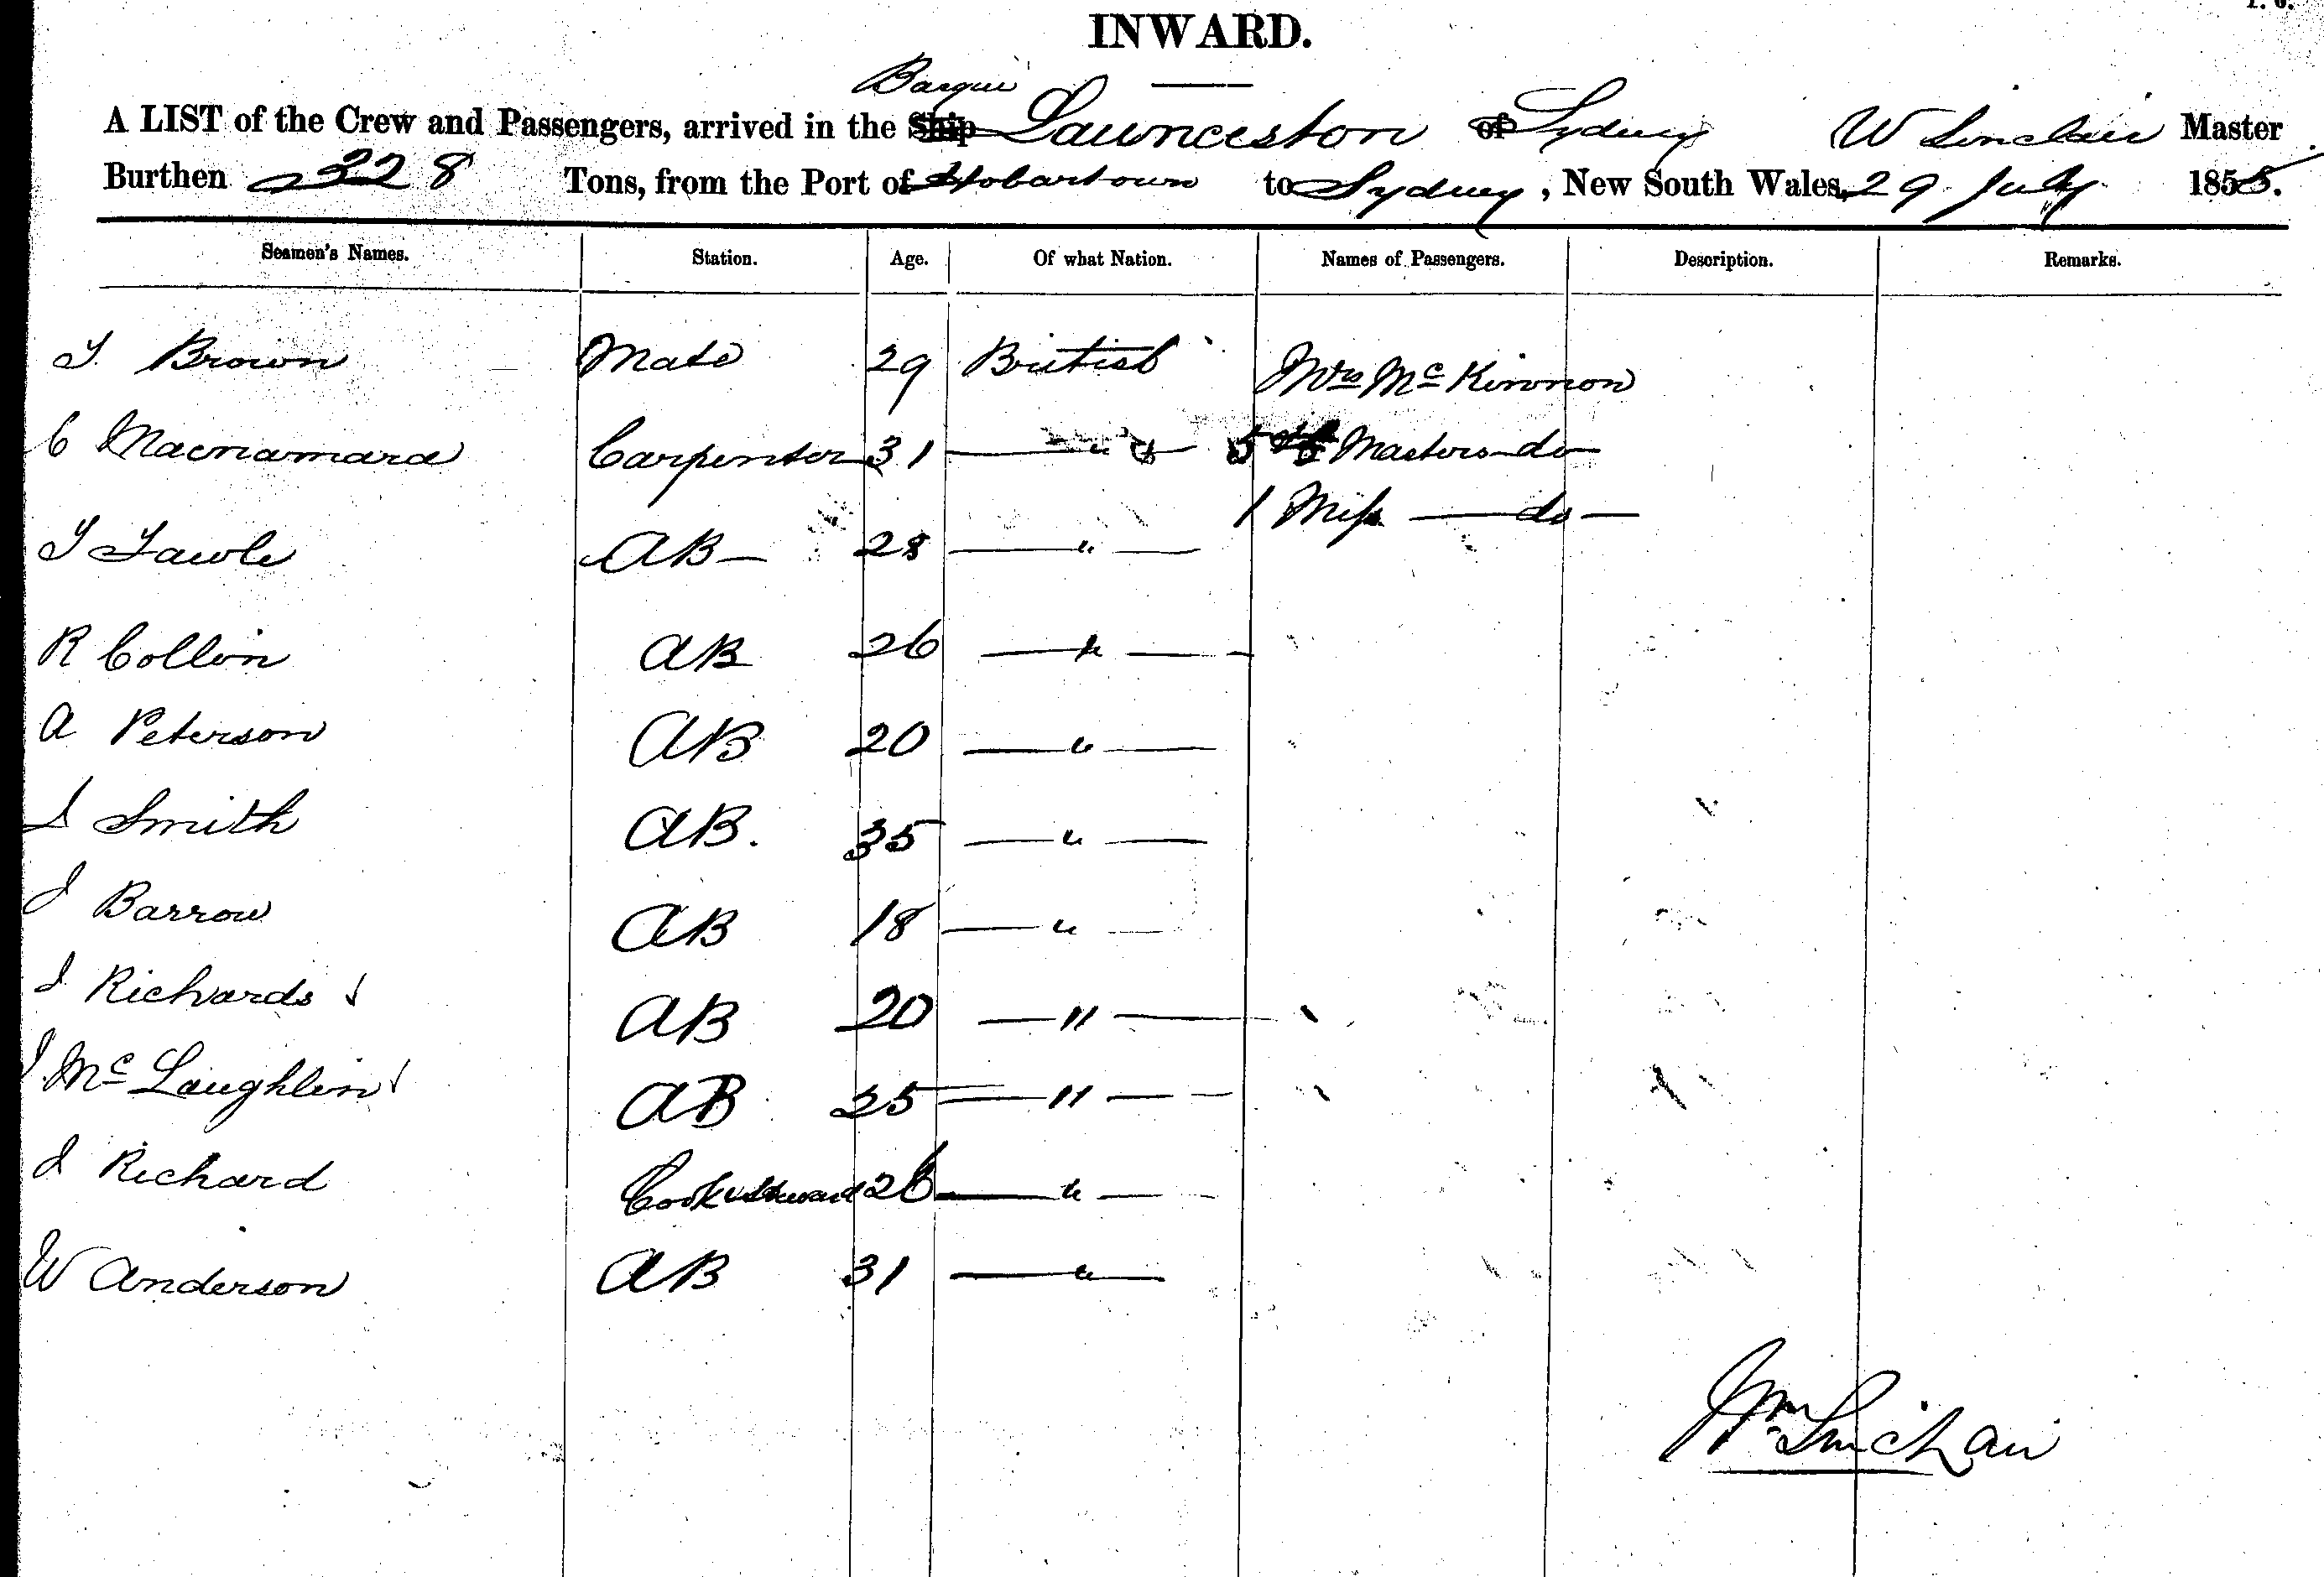 INWARD.
Barque
A LIST of the Crew and Passengers, arrived in the Ship Launceston of Sydney W Sinclair Master
Burthen 328 Tons, from the Port of Hobartown to Sydney, New South Wales, 29 July 1855.
Seamen's Names. Station. Age. Of what Nation. Names of Passengers. Description. Remarks.
T. Brown Mate 29 British Mrs McKinnon
C Macnamara Carpenter 31 — " — 5 Masters do
1 Miss — do —
T Tawle AB — 28 — " —
R Collin AB 26 — " —
A Peterson AB 20 — " —
S Smith AB. 35 — " —
J Barrow AB 18 — " —
J Richards AB 20 — " —
J McLaughlin AB 25 — " —
J Richard Cook & Steward 26 — " —
W Anderson AB 31 — " —
Wm Sinclair